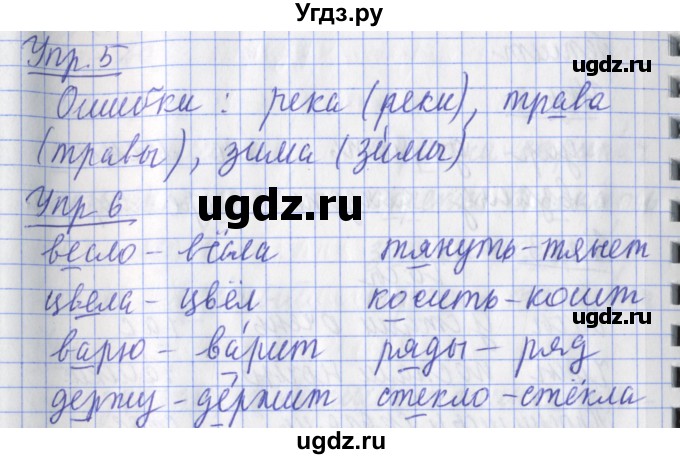 Угдз.ру
Упр. 5
ugdz.ru
Ошибки: река (реки), трава
(травы), зима (зимы)
Упр 6
ugdz.ru
ugdz.ru
весло – вёсла тянуть – тянет
цвела – цвёл косить – косит
ugdz.ru
варю – ва́рит ряды – ряд
ugdz.ru
держу – де́ржит стекло – стёкла
ugdz.ru